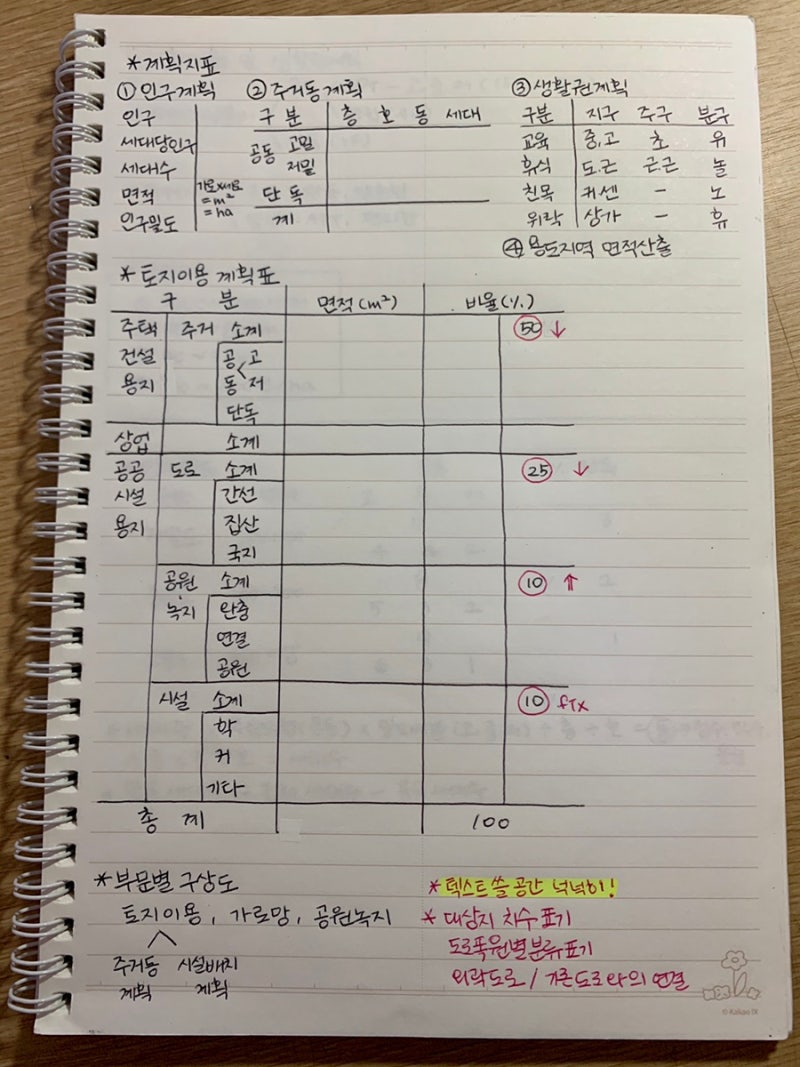 *계획지표
① 인구계획 ② 주거동계획 ③ 생활권계획
인구 구 분 층 호 동 세대 구분 지구 주구 분구
세대당인구 공동 고밀 교육 중,고 초 유
세대수 저밀 휴식 도.근 근근 놀
면적 가로x세로 =m² =ha 단 독 친목 커센 - 노
인구밀도 계 위락 상가 - 휴
④ 용도지역 면적산출
*토지이용 계획표
구 분 면적(m²) 비율(%)
주택 주거 소계 50 ↓
건설 공 고
용지 동 저
단독
상업 소계
공공 도로 소계 25 ↓
시설 간선
용지 집산
국지
공원 소계 10 ↑
녹지 완충
연결
공원
시설 소계 10 fix
학
커
기타
총 계 100
*부문별 구상도
토지이용, 가로망, 공원녹지
주거동 시설배치
계획 계획
*텍스트 쓸 공간 넉넉히!
*대상지 치수 표기
도로폭원별 분류 표기
외곽도로 / 기존도로와의 연결
© Kakao IX